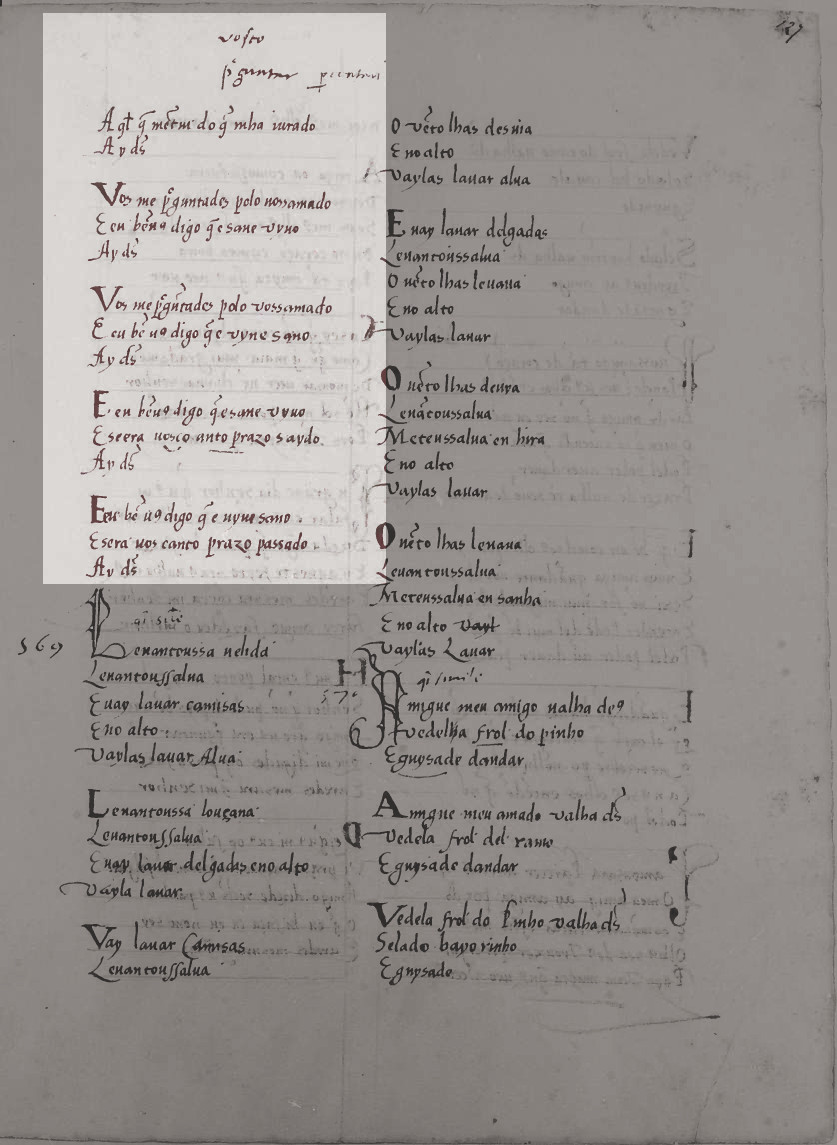 vosco
p̃guntar
127
A q̃l q̃ mẽtiu do q̃ mha iurado
Ay ds̃
Vos me p̃guntades polo uossamado
E eu bẽ uꝯ digo q̃ e sane vyuo
Ay ds̃
Vos me p̃gũtades polo vossamado
E eu bẽ uꝯ digo q̃ e vyue sano
Ay ds̃
E eu bẽ uꝯ digo q̃ e sane vyuo
E seera uosco anto prazo saydo
Ay ds̃
Eeu bẽ uꝯ digo q̃ e uyue sano
E sera uos canto prazo passado
Ay ds̃
569
Leuantoussa uelida
Leuantoussalua
E uay lauar camisas
Eno alto
Vaylas lauar Alua
Leuantoussa louçana
Leuantoussalua
E uay lauar delgadas eno alto
Vayla lauar
Vay lauar Camisas
Leuantoussalua
O uẽto lhas desuia
Eno alto
Vaylas lauar alua
E uay lauar delgadas
Leuantoussalua
O uẽto lhas leuaua
Eno alto
Vaylas lauar
O uẽto lhas desuya
Leuãtoussalua
Meteussalua en hira
Eno alto
Vaylas lauar
O uẽto lhas leuaua
Leuantoussalua
Meteussalua en sanha
Eno alto
Vaylas Lauar
570
Amigue meu amigo ualha deꝯ
Vedelha frol do pinho
E guysade dandar
Amigue meu amado valha ds̃
Vedela frol del ramo
E guysade dandar
Vedela frol do Pinho valha ds̃
Selado bayorinho
E guysado